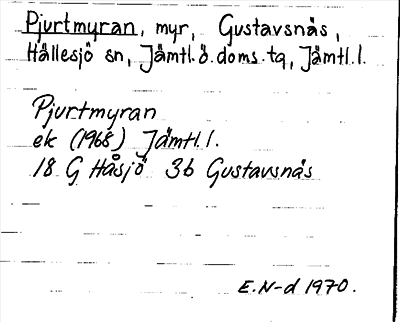 Pjurtmyran, myr, Gustavsnäs,
Hällesjö sn, Jämtl.ö.doms.tg, Jämtl.l.
Pjurtmyran
ek (1968) Jämtl.l.
18 G Håsjö 3b Gustavsnäs
E.N-d 1970.